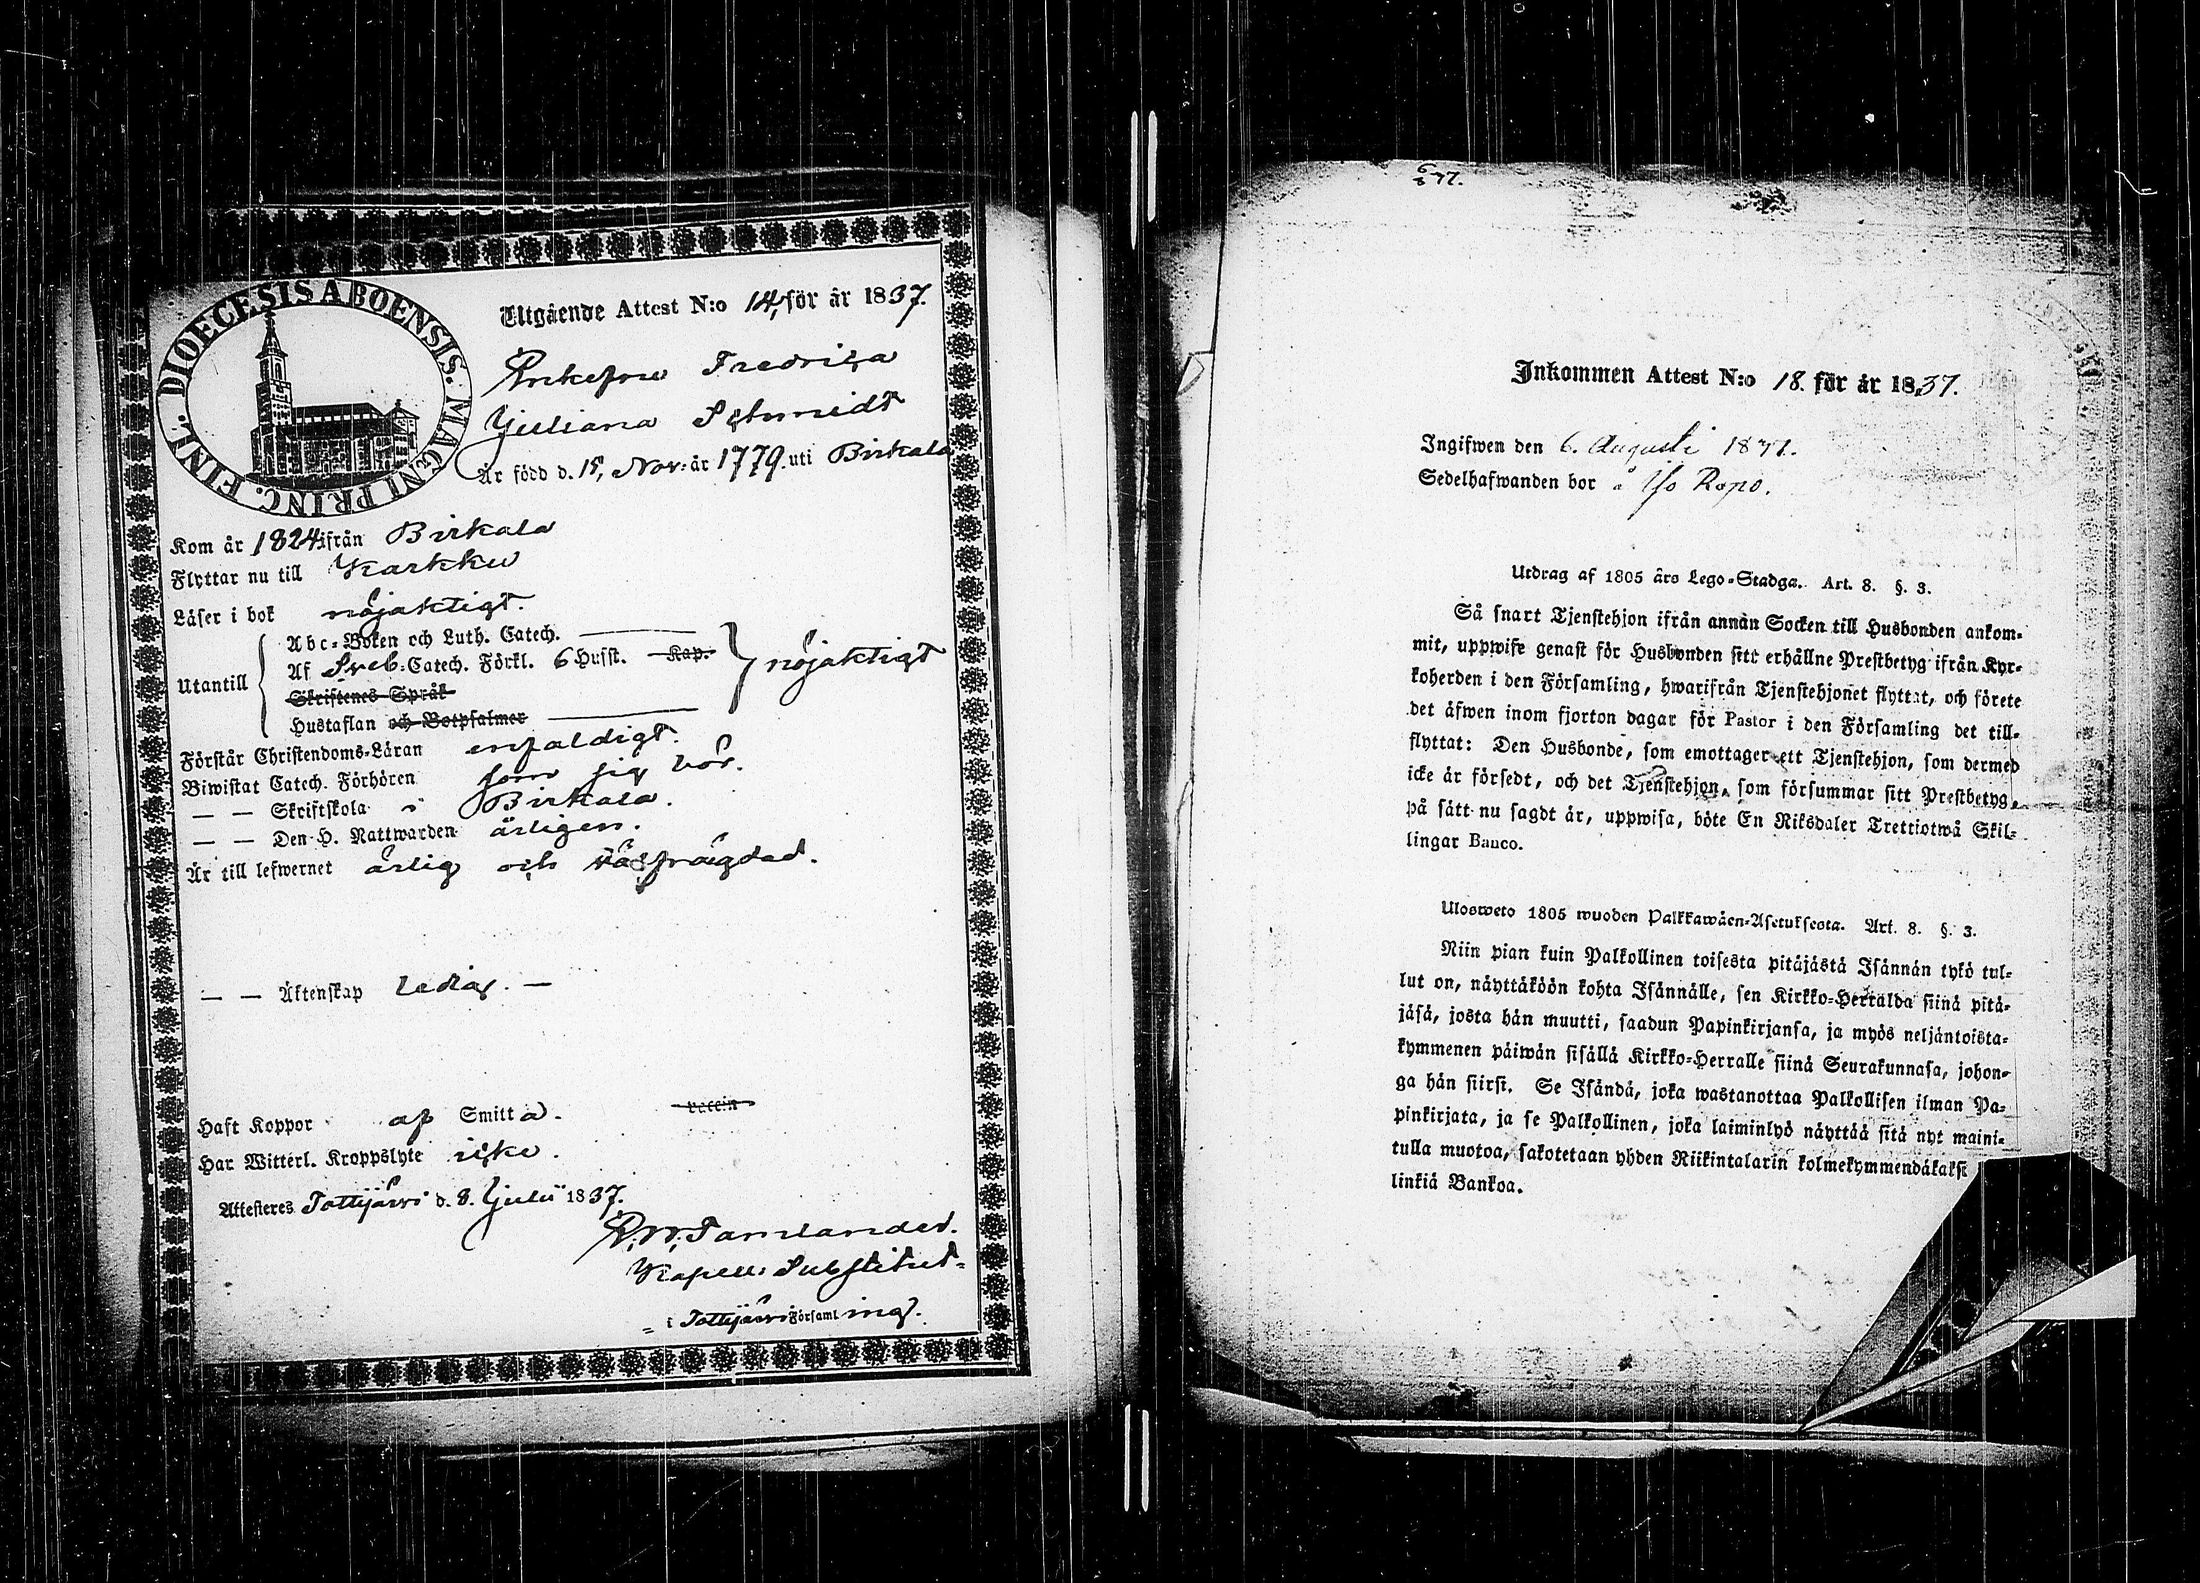 DIOECESIS ABOENSIS. MAGNI PRINC. FINL.
Utgående Attest N:o 14, för år 1837.
Enkefru Fredrica
Juliana Schmidt
Är född d. 15, Nov: år 1779. uti Birkala
Kom år 1824. ifrån Birkala
Flyttar nu till Karkku
Läser i bok nöjaktigt.
Utantill
Abc-Boken och Luth. Catech.
Af Sveb: Catech. Förkl. 6 Husst. Kap.
Skriftenes Språk
Hustaflan och Botpsalmer
nöjaktigt
Förstår Christendoms-Läran enfaldigt.
Biwistat Catech. Förhören som sig bör.
— — Skriftskola i Birkala.
— — Den H. Nattwarden årligen.
Är till lefwernet ärlig och välfrägdad.
— — Äktenskap Ledig. —
Haft Koppor af Smitta. vaccin
Har Witterl. Kroppslyte icke.
Attesteres Tottijärvi d. 8. Julii 1837.
Kapell: Substitut
i Tottijärvi Församling.
6/8 37.
Inkommen Attest N:o 18. för år 1837.
Ingifwen den 6. Augusti 1837.
Sedelhafwanden bor å Iso Ropo.
Utdrag af 1805 års Lego-Stadga. Art. 8. §. 3.
Så snart Tjenstehjon ifrån annan Socken till Husbonden ankom-
mit, uppwise genast för Husbonden sitt erhållne Prestbetyg ifrån Kyr-
koherden i den Församling, hwarifrån Tjenstehjonet flyttat, och förete
det äfwen inom fjorton dagar för Pastor i den Församling det till-
flyttat: Den Husbonde, som emottager ett Tjenstehjon, som dermed
icke är försedt, och det Tjenstehjon, som försummar sitt Prestbetyg,
på sätt nu sagdt är, uppwisa, böte En Riksdaler Trettiotwå Skil-
lingar Banco.
Ulosweto 1805 wuoden Palkkawäen-Asetuksesta. Art. 8. §. 3.
Niin pian kuin Palkollinen toisesta pitäjästä Isännän tykö tul-
lut on, näyttäköön kohta Isännälle, sen Kirkko-Herralda siinä pitä-
jäsä, josta hän muutti, saadun Papinkirjansa, ja myös neljäntoista-
kymmenen päiwän sisällä Kirkko-Herralle siinä Seurakunnasa, johon-
ga hän siirsi. Se Isändä, joka wastanottaa Palkollisen ilman Pa-
pinkirjata, ja se Palkollinen, joka laiminlyö näyttää sitä nyt maini-
tulla muotoa, sakotetaan yhden Riikintalarin kolmekymmendäkaksi
linkiä Bankoa.